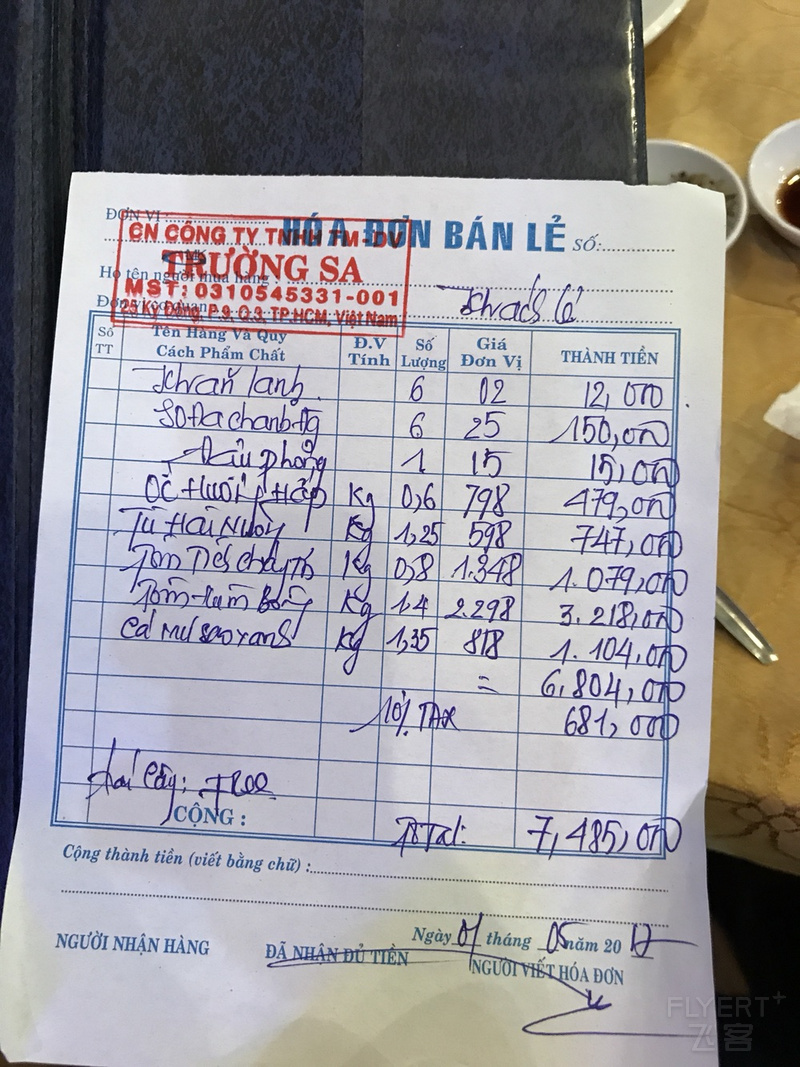 ĐƠN VỊ
HÓA ĐƠN BÁN LẺ SỐ:
CN CÔNG TY TNHH TM-DV
TRƯỜNG SA
Họ tên người mua hàng
MST: 0310545331-001
25 Kỳ Đồng, P.9, Q.3, TP.HCM, Việt Nam
Khách lẻ
Số TT Tên Hàng Và Quy Cách Phẩm Chất Đ.V Tính Số Lượng Giá Đơn Vị THÀNH TIỀN
Khăn lạnh 6 02 12,000
Soda chanh 6 25 150,000
Đậu phộng 1 15 15,000
Ốc Hương Hấp Kg 0,6 798 479,000
Tu Hài Nướng Kg 1,25 598 747,000
Tôm Kg 0,8 1.348 1.079,000
Tôm Hùm Bông Kg 1,4 2.298 3.218,000
Cá Mú Kg 1,35 818 1.104,000
= 6,804,000
10% TAX 681,000
trái cây: FREE
CỘNG :
Total: 7,485,000
Cộng thành tiền (viết bằng chữ) :
Ngày 01 tháng 05 năm 20 17
NGƯỜI NHẬN HÀNG ĐÃ NHẬN ĐỦ TIỀN NGƯỜI VIẾT HÓA ĐƠN
FLYERT+
飞客